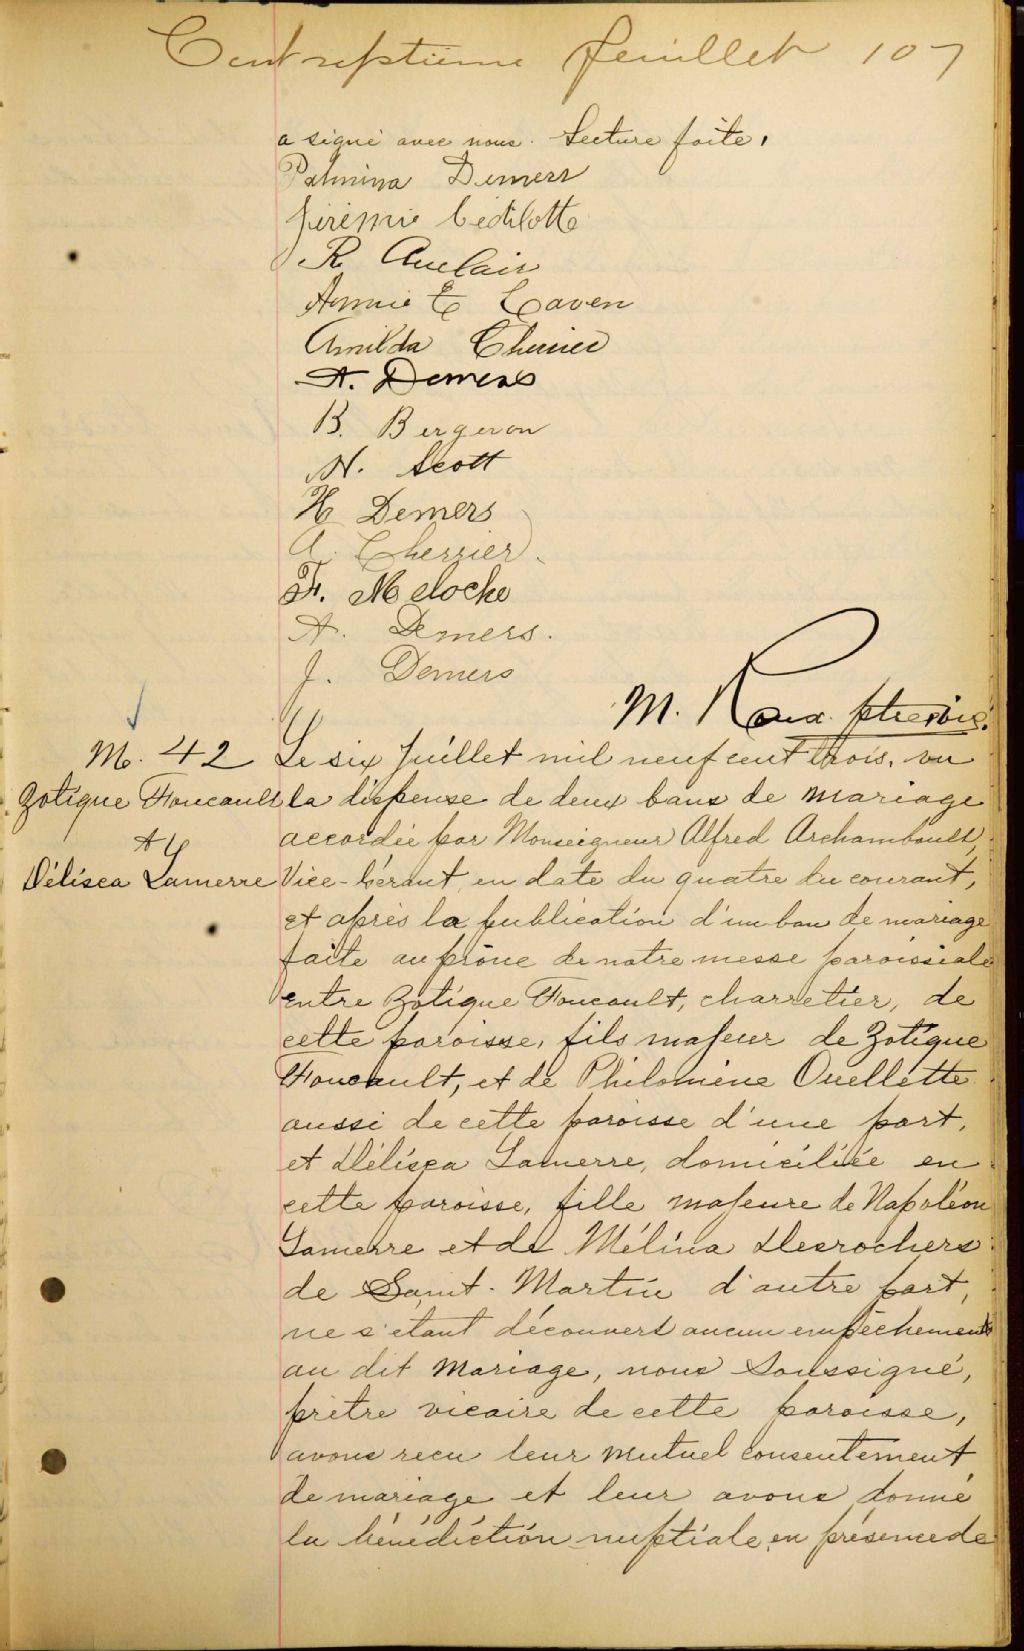 Cent septième feuillet 107
a signé avec nous. Lecture faite.
Palmina Demers
Jérémie
R. Auclair
Annie E Caven
Amilda Cherrier
A. Demers
B. Bergeron
N. Scott
H Demers
A. Cherrier.
F. Meloche
A. Demers.
J. Demers
M. Roux. ptre vic.
M. 42
Zotique Foucault
et
Délisca Lamerre
Le six Juillet mil neuf cent trois, vu
la dispense de deux bans de mariage
accordée par Monseigneur Alfred Archambault,
Vice-Gérant, en date du quatre du courant,
et après la publication d'un ban de mariage
faite au prône de notre messe paroissiale
entre Zotique Foucault, charretier, de
cette paroisse, fils majeur de Zotique
Foucault, et de Philomène Ouellette
aussi de cette paroisse d'une part,
et Délisca Lamerre, domiciliée en
cette paroisse, fille majeure de Napoléon
Lamerre et de Mélina Desrochers
de Saint-Martin d'autre part,
ne s'étant découvert aucun empêchement
au dit mariage, nous soussigné,
prêtre vicaire de cette paroisse,
avons reçu leur mutuel consentement
de mariage et leur avons donné
la bénédiction nuptiale en présence de